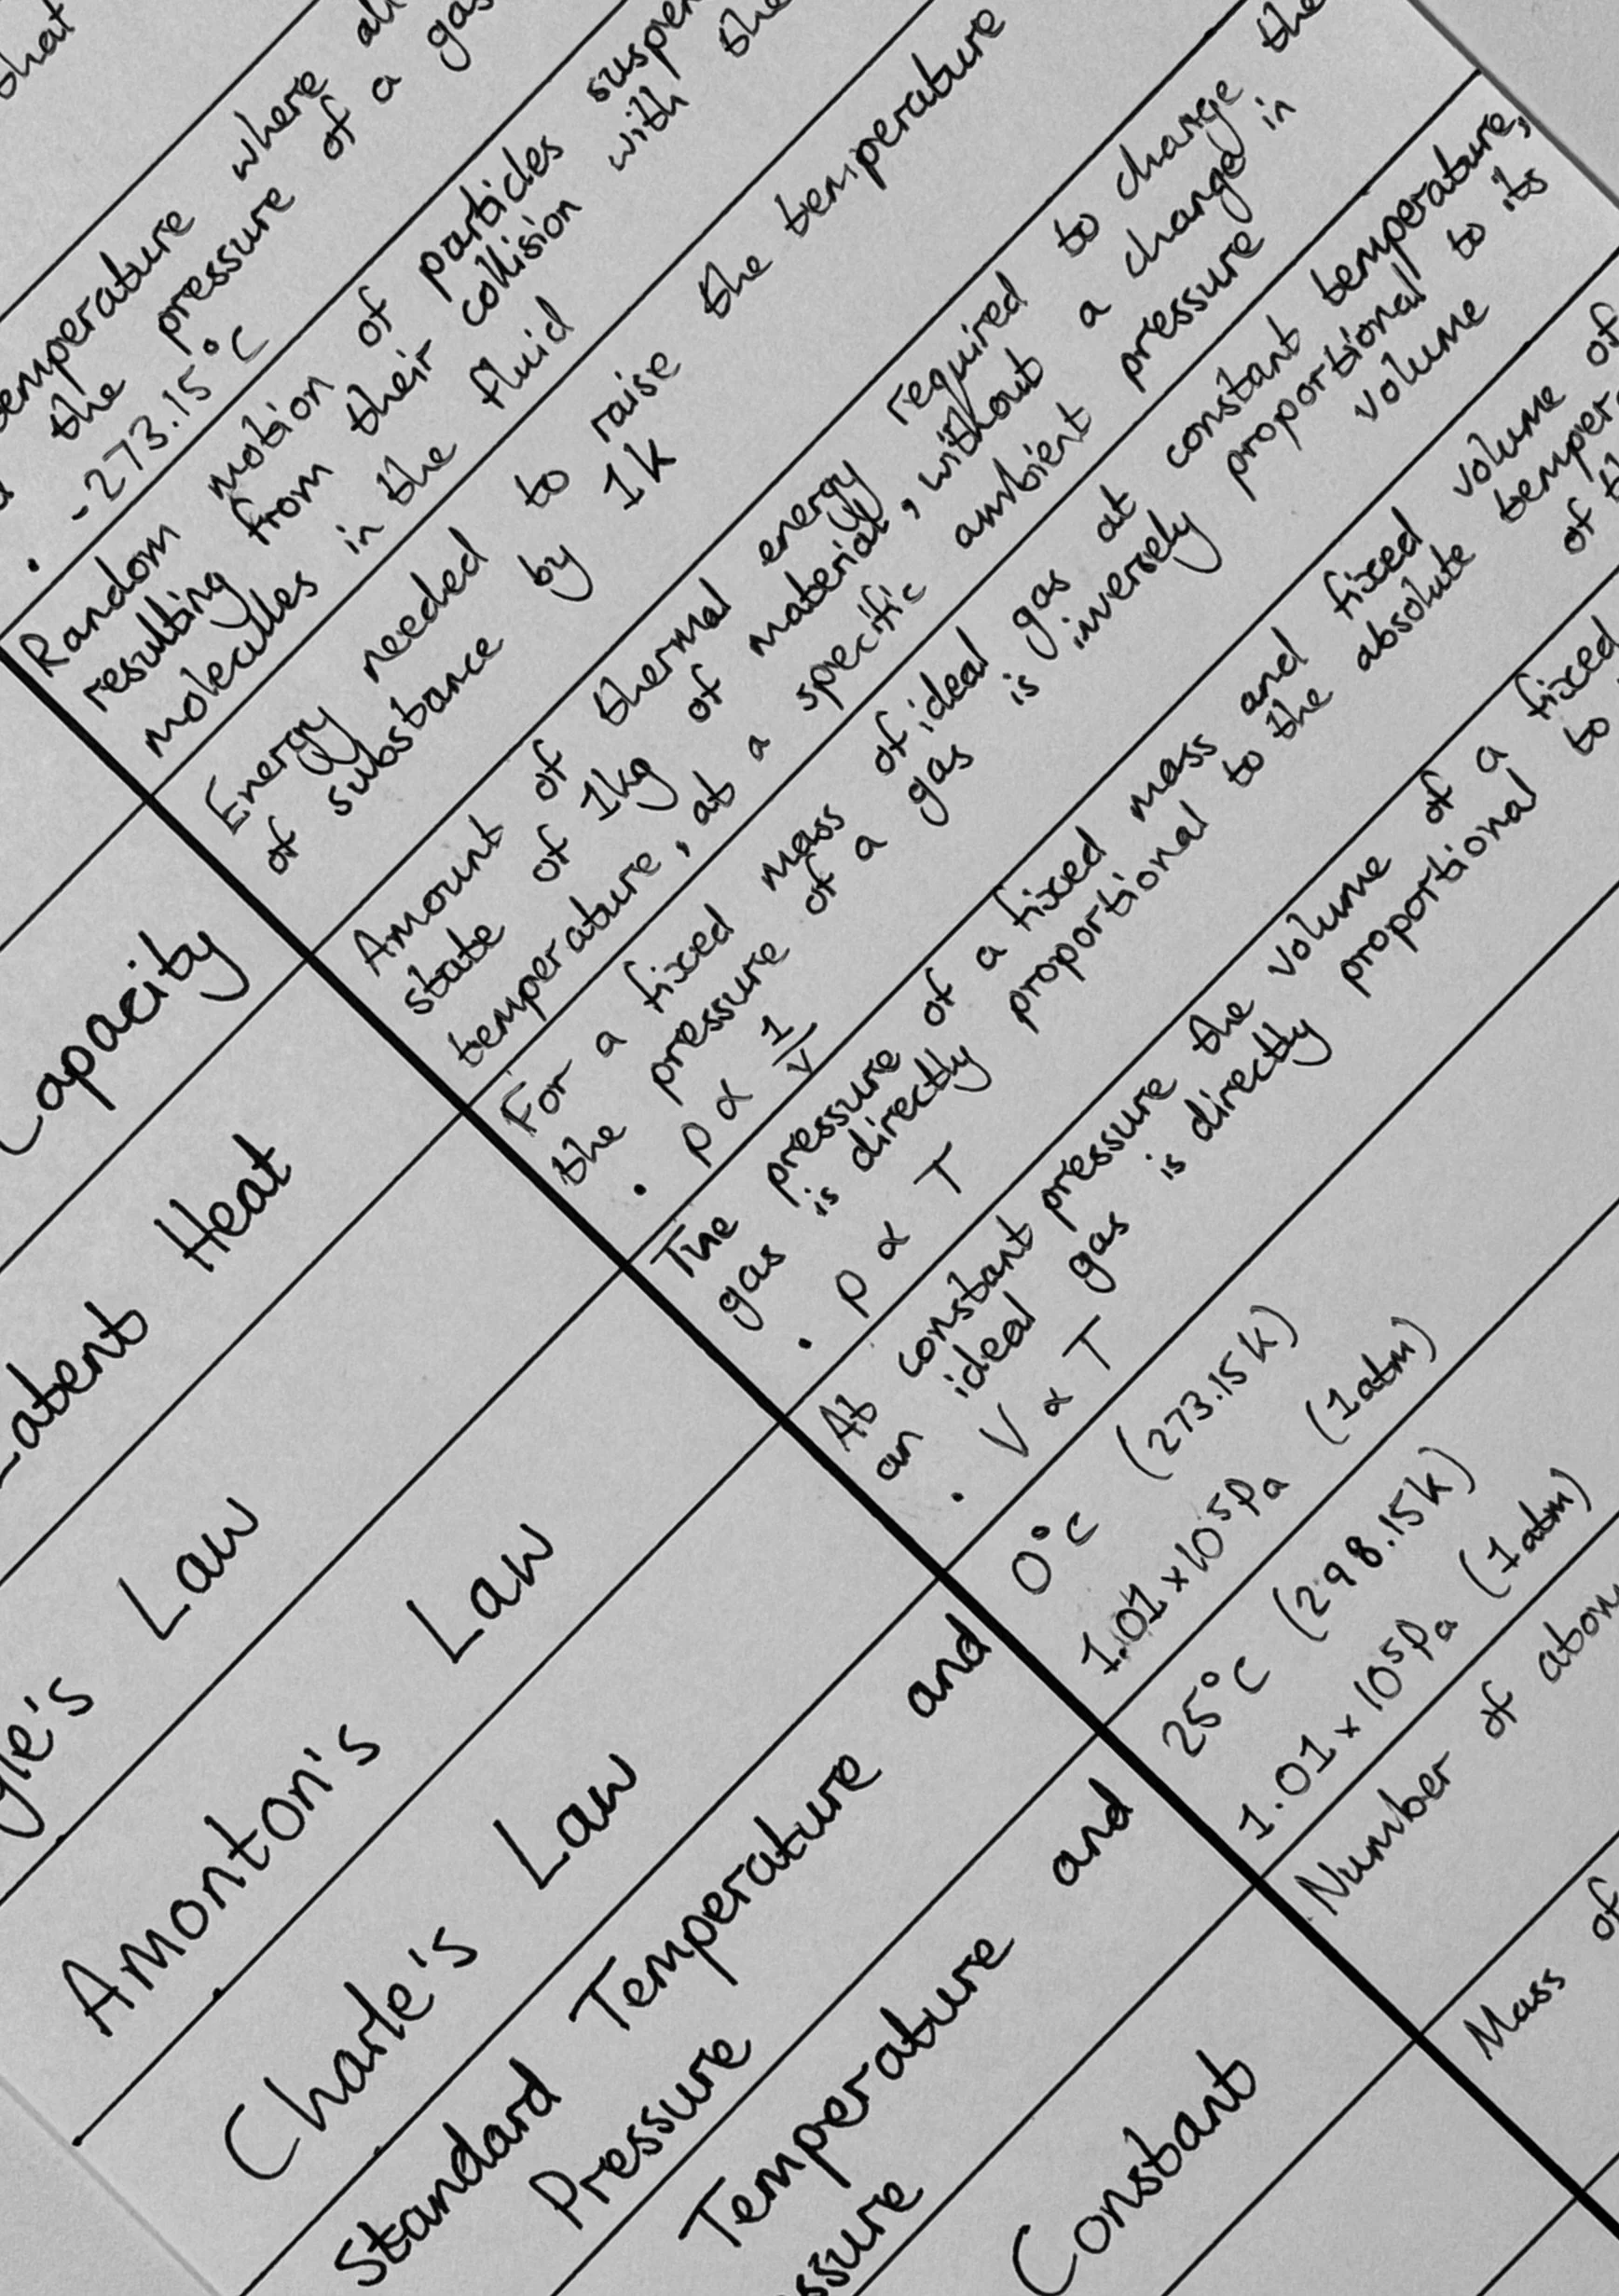 that
temperature where all
the pressure of a gas
• -273.15°C
Random motion of particles
resulting from their collision with the
molecules in the fluid
Capacity
Energy needed to raise the temperature
of substance by 1K
Latent Heat
Amount of thermal energy required to change the
state of 1kg of material, without a change in
temperature, at a specific ambient pressure
Law
For a fixed mass of ideal gas at constant temperature,
the pressure of a gas is inversely proportional to its
volume
• p ∝ 1/V
Amonton's Law
The pressure of a fixed mass and fixed volume of
gas is directly proportional to the absolute
of
• p ∝ T
Charle's Law
At constant pressure the volume of a fixed
an ideal gas is directly proportional to
• V ∝ T
Standard Temperature and
Pressure
0°C (273.15K)
1.01 × 10⁵Pa (1atm)
Temperature and
25°C (298.15K)
1.01 × 10⁵Pa (1atm)
Constant
Number of
Mass of